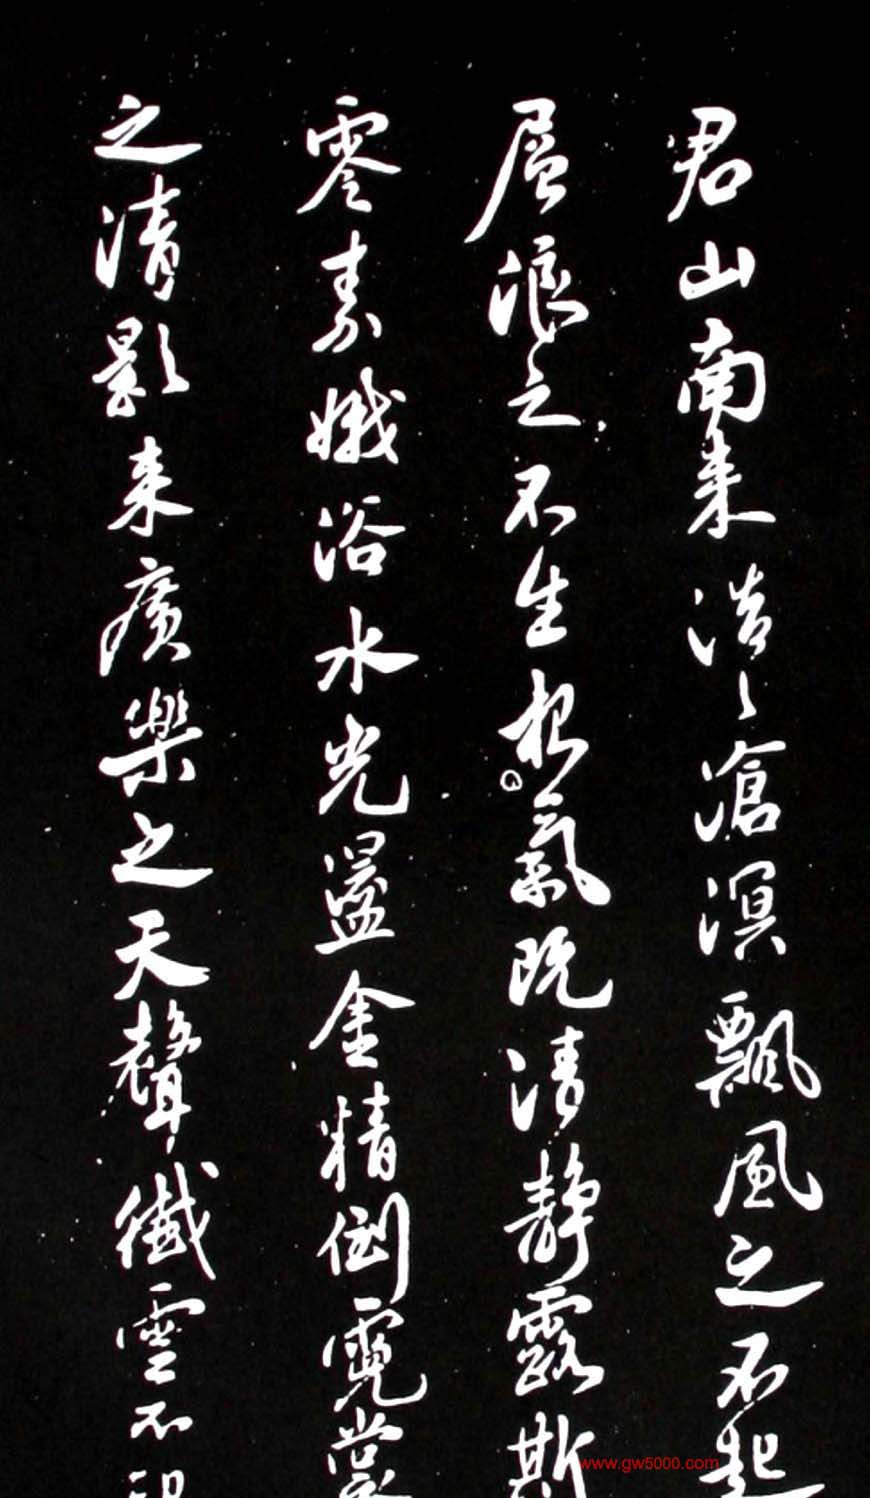 君山南来浩〻滄溟飄風之不起
層浪之不生氣既清静露斯
零素娥浴水光盪金精倒霓裳
之清影来廣樂之天聲纖雲不
www.gw5000.com